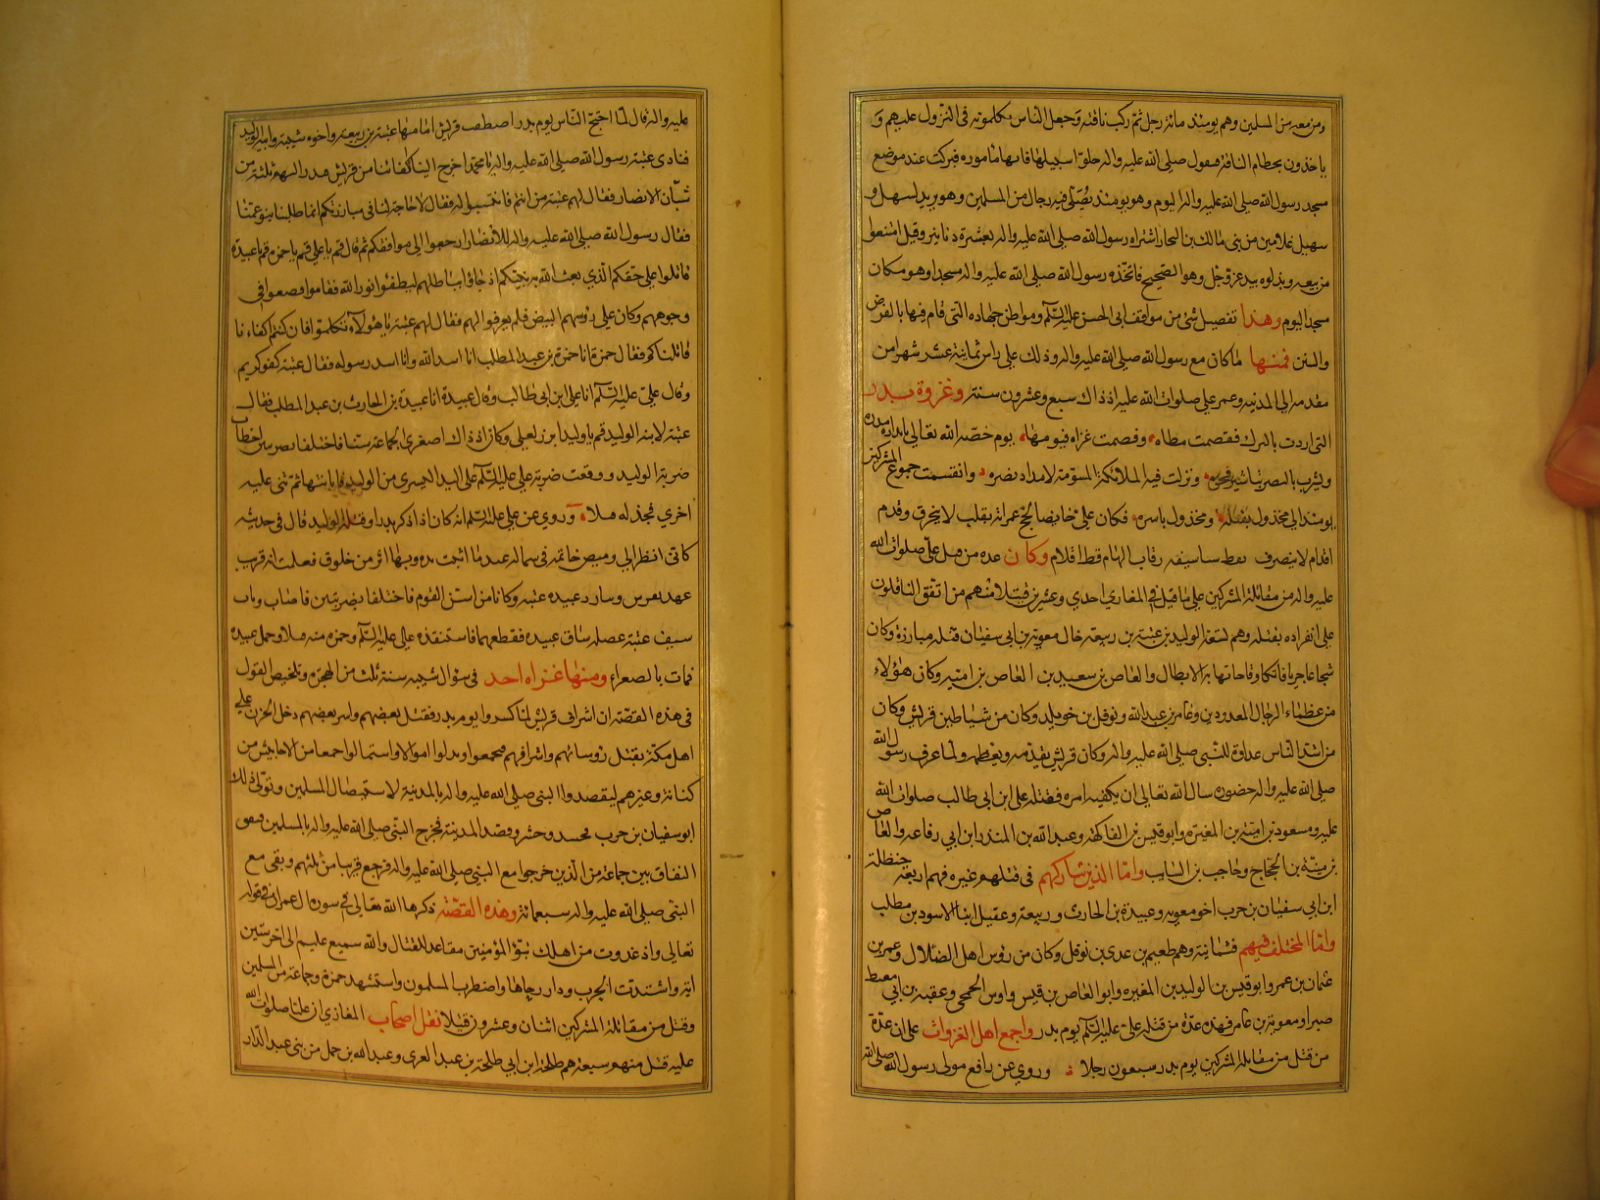 ومن معه من المسلمين وهم يومئذ مائة رجل ثم ركب ناقته وجعل الناس يكلمونه في النزول عليهم و
ياخذون بخطام الناقة فيقول صلى الله عليه واله خلوا سبيلها فانها مامورة فبركت عند موضع
مسجد رسول الله صلى الله عليه واله اليوم وهو يومئذ يصلى فيه رجال من المسلمين وهو مربد لسهل و
سهيل غلامين من بنى مالك بن النجار اشتراه رسول الله صلى الله عليه واله بعشرة دنانير وقيل امتنعوا
من بيعه وبذلوه لله عز وجل وهو الصحيح فاتخذه رسول الله صلى الله عليه واله مسجدا وهو مكان
مسجد اليوم وهذا تفصيل شئ من مواقف ابى الحسن عليه السلم ومواطن جهاده التى قام فيها بالفرض
والسنن فمنها ما كان مع رسول الله صلى الله عليه واله وذلك على راس ثمانية عشر شهرا من
مقدمه الى المدينة وعمر على صلوات الله عليه اذ ذاك سبع وعشرون سنة وغزوة بدر
التى اردت بالشرك فقصمت مطاه وفصمت غراه فيومها يوم خصه الله تعالى
ونزلت فيه الملائكة المسومة لامداد نصره وانقسمت جموع المشركين
يومئذ الى مجذول بقتله ومخذول باسره فكان على خائضا لجج غمراته بقلب لا يخرق وقدم
اقدام لا ينصرف يقط بسيفه رقاب الهام قط اقلام وكان عدة من قتل على صلوات الله
عليه واله من مقاتلة المشركين على ما قيل فى المغازى احدى وعشرين قتيلا منهم من اتفق الناقلون
على انفراده بقتله وهم تسعة الوليد بن عتبة بن ربيعة خال معوية بن ابى سفيان قتله مبارزة وكان
شجاعا جريا فاتكا وقاحا تهابه الابطال والعاص بن سعيد بن العاص بن امية وكان هؤلاء
من عظماء الرجال المعدودين وعامر بن عبد الله ونوفل بن خويلد وكان من شياطين قريش وكان
من اشد الناس عداوة للنبى صلى الله عليه واله وكان قريش يقدمه ويعظمه ولما عرف رسول الله
صلى الله عليه واله حضوره سال الله تعالى ان يكفيه امره فقتله على ابن ابى طالب صلوات الله
عليه ومسعود بن امية بن المغيرة وابو قيس بن الفاكهة وعبد الله بن المنذر ابن ابى رفاعة والعاص
بن منبه بن الحجاج وحاجب بن السايب واما الذين شاركهم فى قتلهم غيره فهم اربعة حنظلة
ابن ابى سفيان بن حرب اخو معوية وعبيدة بن الحارث وربيعة وعقيل ابنا الاسود بن مطلب
واما المختلف فيهم فثمانية وهم طعيم بن عدى بن نوفل وكان من رؤس اهل الضلال وعمير بن
عثمان بن عمرو وابو قيس بن الوليد بن المغيرة وابو العاص بن قيس واوس الجمحى وعقبة بن ابى معيط
صبرا ومعوية بن عامر فهذه عدة من قتله على عليه السلم يوم بدر واجمع اهل الغزوات على ان عدة
من قتل من مقاتلة المشركين يوم بدر سبعون رجلا وروى عن رافع مولى رسول الله صلى الله
عليه واله قال لما اصبح الناس يوم بدر اصطف قريش امامها عتبة بن ربيعة واخوه شيبة وابنه الوليد
فنادى عتبة رسول الله صلى الله عليه واله يا محمد اخرج الينا اكفائنا من قريش فبدر اليهم ثلثة من
شبان الانصار فقال لهم عتبة من انتم فانتسبوا له فقال لا حاجة لنا فى مبارزتكم انما طلبنا بنو عمنا
فقال رسول الله صلى الله عليه واله للانصار ارجعوا الى مواقفكم ثم قال قم يا على قم يا حمزة قم يا عبيدة
قاتلوا على حقكم الذى بعث الله به نبيكم اذ جاؤا بباطلهم ليطفئوا نور الله فقاموا فصفوا فى
وجوههم وكان على رؤسهم البيض فلم يعرفوا لهم فقال لهم عتبة يا هؤلاء تكلموا فان كنتم اكفاءنا
قاتلناكم فقال حمزة انا حمزة بن عبد المطلب انا اسد الله وانا اسد رسوله فقال عتبة كفو كريم
وقال على عليه السلم انا على ابن ابى طالب وقال عبيدة انا عبيدة بن الحارث بن عبد المطلب فقال
عتبة لابنه الوليد قم يا وليد ابرز لعلى وكان اذ ذاك اصغرى الجماعة سنا فاختلفا بضربتين اخطات
ضربة الوليد ووقعت ضربة على عليه السلم على اليد اليسرى من الوليد فابانتها ثم ثنى عليه
اخرى فجذله قتيلا وروى عن على عليه السلم انه كان اذا ذكر بدرا وقتله الوليد قال فى حديثه
كانى انظر الى وميض خاتمه فى شماله عندما ابنت يده وبها اثر من خلوق فعلمت انه قريب
عهد بعرس وبارز عبيدة عتبة وكانا من اسن القوم فاختلفا بضربتين فاصاب ذباب
سيف عتبة عضلة ساق عبيدة فقطعهما فاستنقذه على عليه السلم وحمزة منه وحمل عبيدة
فمات بالصفراء ومنها غزاة احد فى شوال شهر سنة ثلث من الهجرة وتلخيص القول
فى هذه القصة ان اشراف قريش لما كسروا يوم بدر فقتل بعضهم واسر بعضهم دخل الحزن على
اهل مكة بقتل رؤسائهم واشرافهم فجمعوا وبذلوا اموالا واستمالوا جمعا من الاحابيش من
كنانة وغيرهم ليقصدوا النبى صلى الله عليه واله بالمدينة لاستيصال المسلمين وتولى ذلك
ابو سفيان بن حرب فحشد وحشر وقصد المدينة فخرج النبى صلى الله عليه واله بالمسلمين فوقع
النفاق بين جماعة من الذين خرجوا مع النبى صلى الله عليه واله فرجع قريبا من ثلثهم وبقى مع
النبى صلى الله عليه واله سبعمائة وهذه القصة ذكرها الله تعالى فى سورة ال عمران فى قوله
تعالى واذ غدوت من اهلك تبوئ المؤمنين مقاعد للقتال والله سميع عليم الى اخر ستين
اية واشتدت الحرب ودار رحاها واضطرب المسلمون واستشهد حمزة وجماعة من المسلمين
وقتل من مقاتلة المشركين اثنان وعشرون قتيلا نقل اصحاب المغازى ان عليا صلوات الله
عليه قتل منهم سبعة هم طلحة ابن ابى طلحة بن عبد العزى وعبد الله بن جميل من بنى عبد الدار